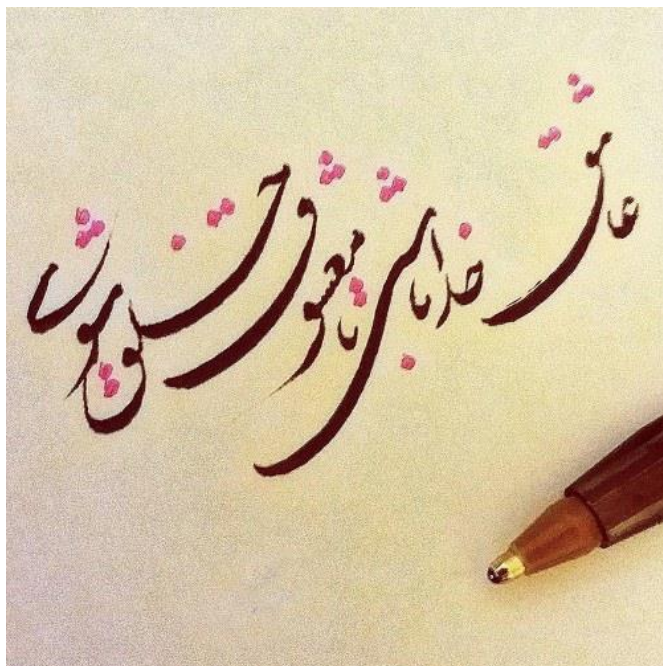 عاشق خدا باش تا معشوق خلق شوی